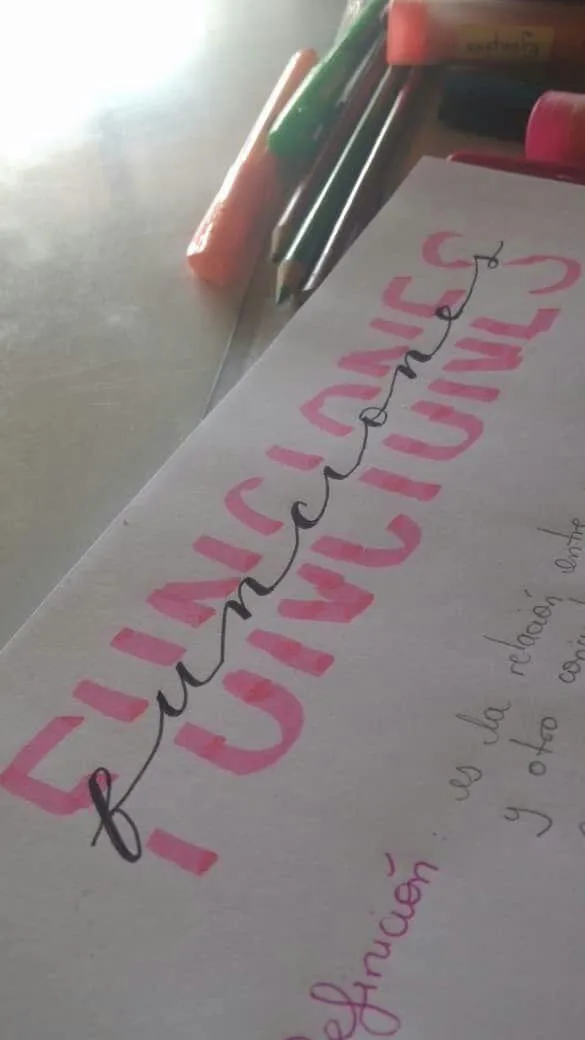 FUNCIONES
funciones
Definición: es la relación entre
y otro